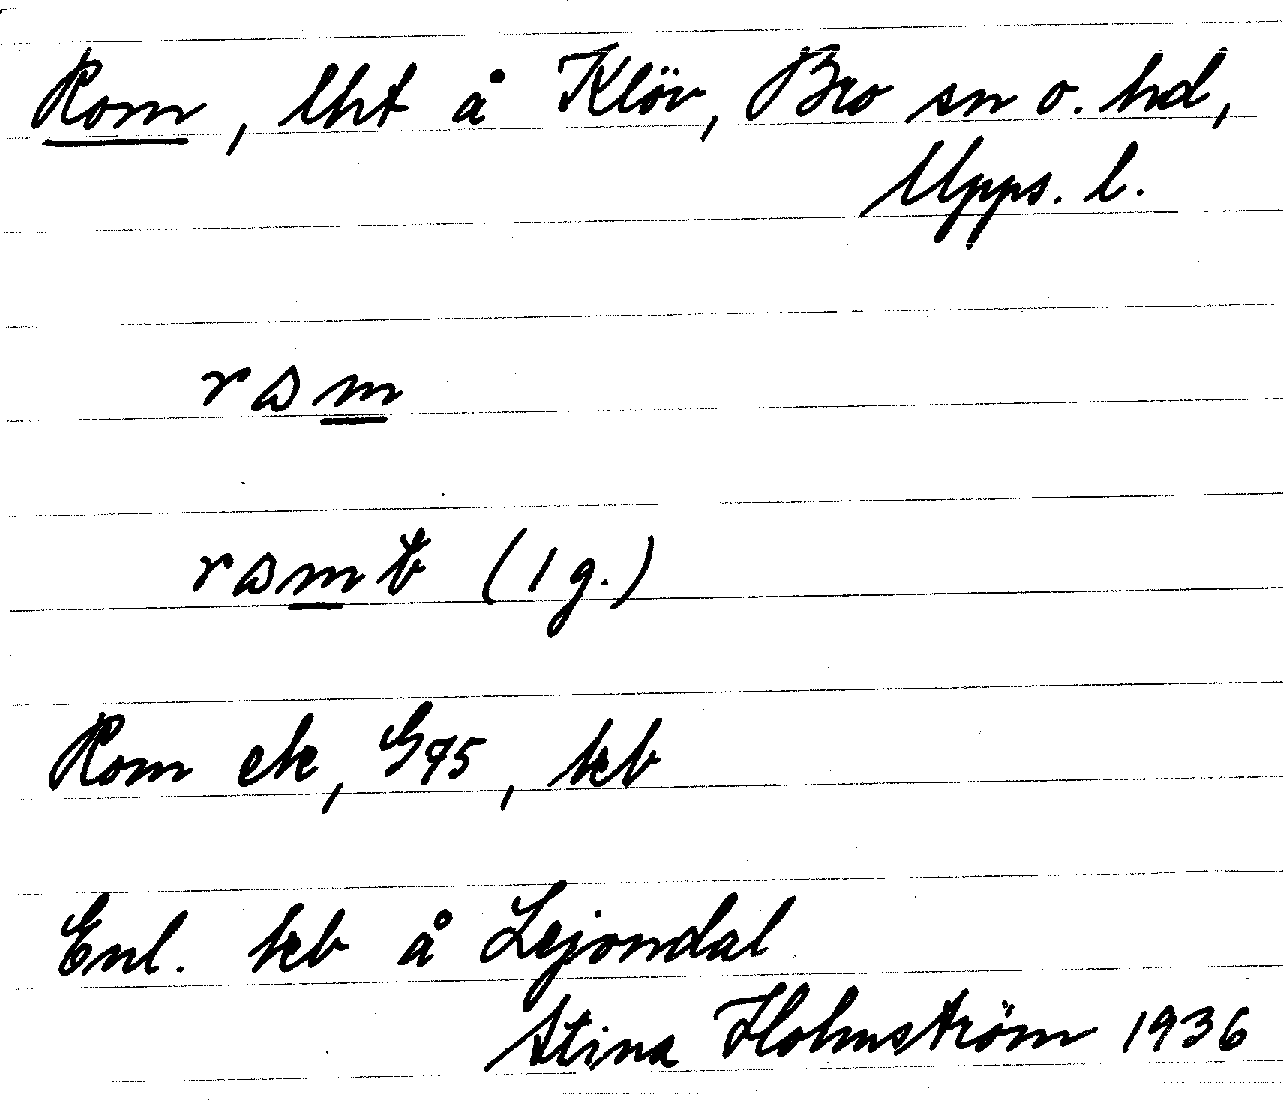 Rom, lht å Klöv, Bro sn o. hd,
Upps. l.
Rom ek, G95, kb
Enl. kb å Lejondal
Stina Holmström 1936